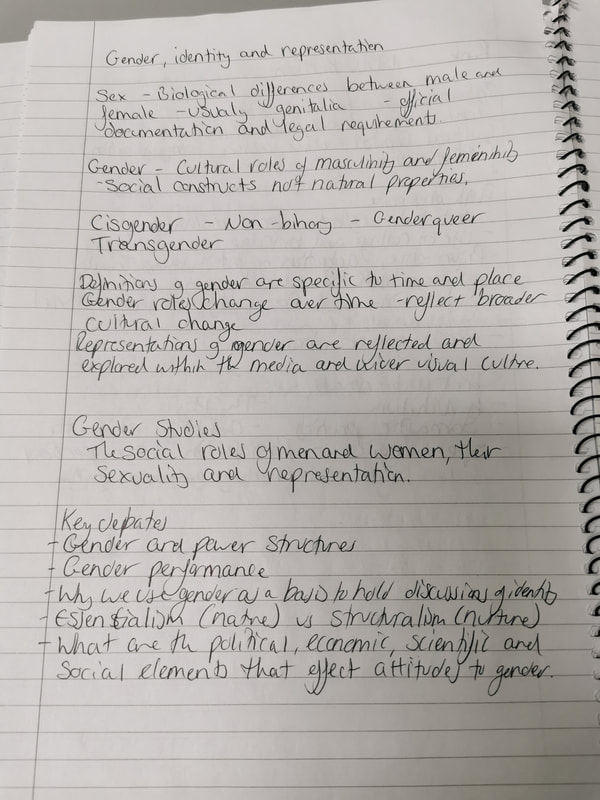 Gender, identity and representation
Sex - Biological differences between male and
female - usualy genitalia - official
documentation and legal requirements.
Gender - Cultural roles of masculinity and femininity
- Social constructs not natural properties.
Cisgender - Non-binary - Genderqueer
Transgender
Definitions of gender are specific to time and place
Gender roles change over time - reflect broader
cultural change
Representations of gender are reflected and
explored within the media and wider visual culture.
Gender Studies
The social roles of men and women, their
sexuality and representation.
Key debates
- Gender and power structures
- Gender performance
- Why we use gender as a basis to hold discussions of identity
- Essentialism (nature) vs structuralism (nurture)
- What are the political, economic, scientific and
social elements that effect attitudes to gender.